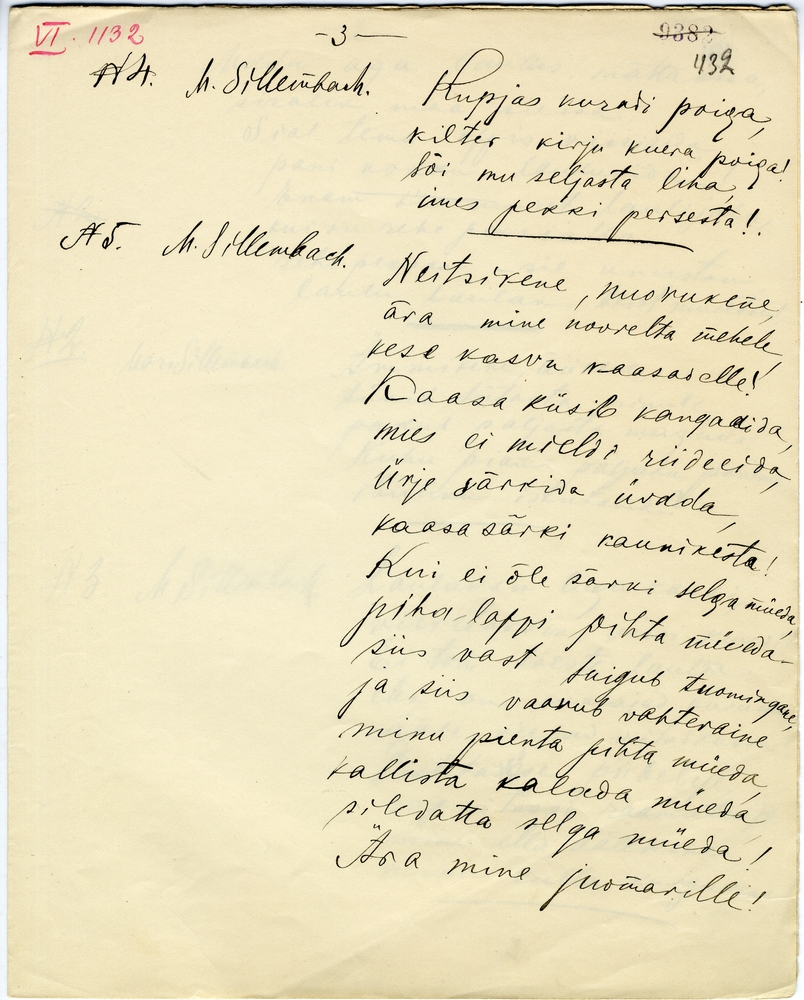 VI. 1132
-3-
9382
432
N 4. M. Sillembach.
Kupjas kuradi poiga,
kilter kirju kuera poiga!
Sõi mu seljasta liha,
imes pekki persesta!
N 5. M. Sillembach.
Neitsikene, nuorukene,
ära mine noorelta mehele,
kese kasvu kaasadelle!
Kaasa küsib kangaaida,
mies ei mieldi riideeida,
Ürje särkida üvada,
kaasa särki kaunikesta!
Kui ei õle särki selga müeda,
piha-lappi pihta müeda-
siis vast suigub tuomingane,
ja siis vaarub vahteraine
minu pienta pihta müeda,
kallista kalada müeda
siledatta selga müeda!
Ära mine juomarille!